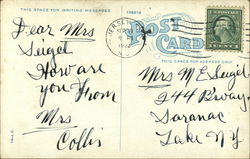 THIS SPACE FOR WRITING MESSAGES
POST CARD
THIS SPACE FOR ADDRESS ONLY
Dear Mrs
Seigel
How are
you From
Mrs
Collis
Mrs M E Seigel
244 Brway
Saranac
Lake NY